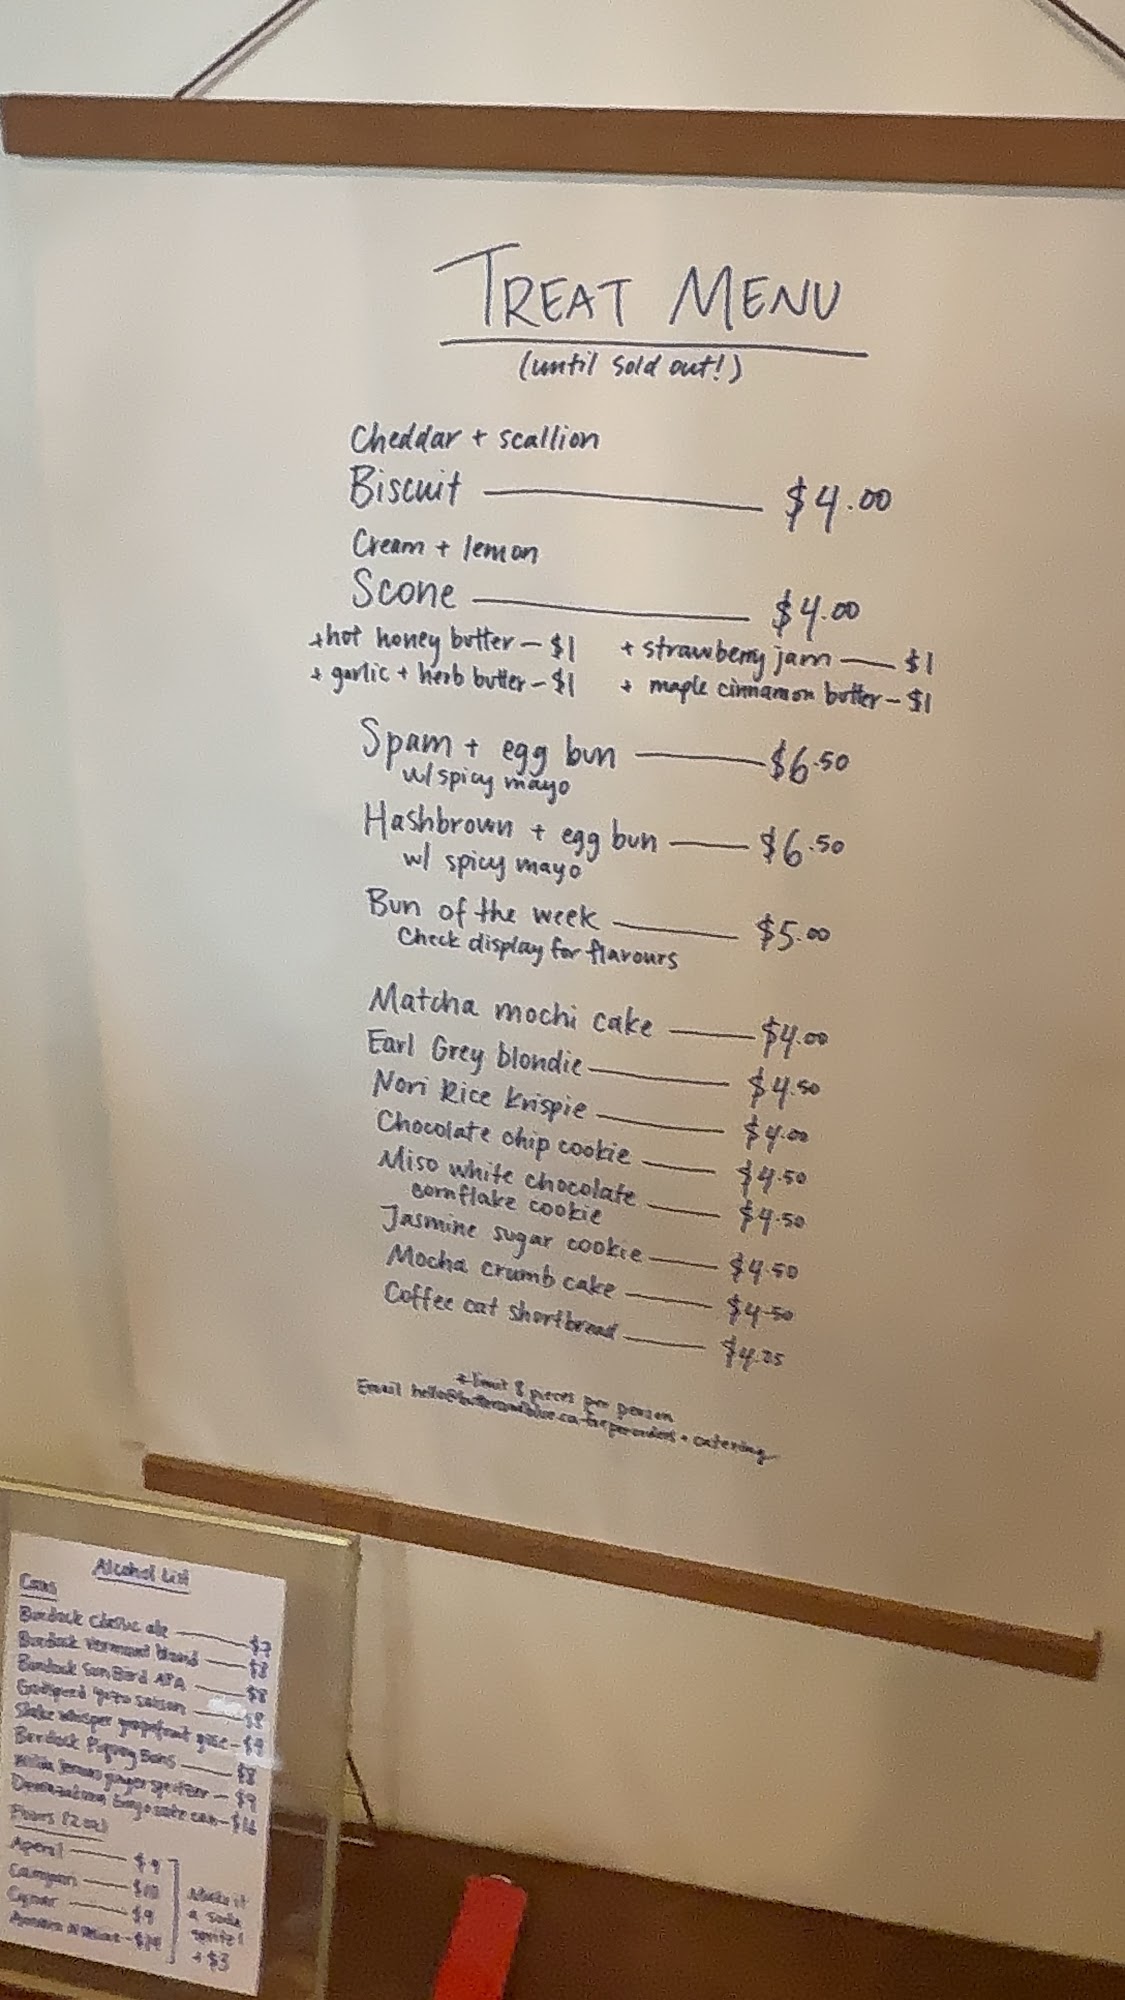 TREAT MENU
(until sold out!)
Cheddar + scallion
Biscuit $4.00
Cream + lemon
Scone $4.00
+ hot honey butter - $1 + strawberry jam - $1
+ garlic + herb butter - $1 + maple cinnamon butter - $1
Spam + egg bun $6.50
w/ spicy mayo
Hashbrown + egg bun $6.50
w/ spicy mayo
Bun of the week $5.00
Check display for flavours
Matcha mochi cake $4.00
Earl Grey blondie $4.50
Nori Rice Krispie $4.00
Chocolate chip cookie $4.50
Miso white chocolate $4.50
cornflake cookie
Jasmine sugar cookie $4.50
Mocha crumb cake $4.50
Coffee oat shortbread $4.25
* limit 8 pieces per person
Email hello@butterandblue.ca + catering
Alcohol List
Cans
Burdock classic ale
Burdock Vermont blond $8
Burdock APA $8
$8
whisper grapefruit gose - $9
Burdock $8
ginger spritzer - $9
sake can - $16
(2oz)
Aperol $9
Campari $10
Cynar $9
Make it
a soda
spritz!
+ $3